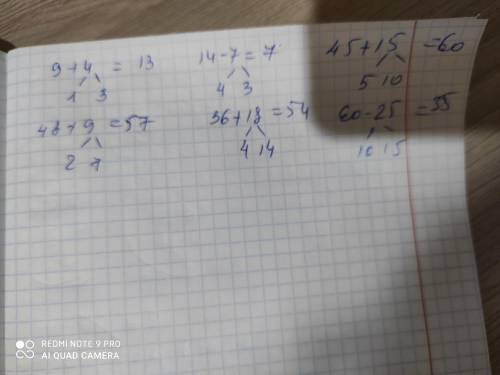 9+4 = 13
1 3
14-7=7
4 3
45+15 =60
5 10
48+9 =57
2 7
36+18=54
4 14
60-25 =35
10 15
REDMI NOTE 9 PRO
AI QUAD CAMERA